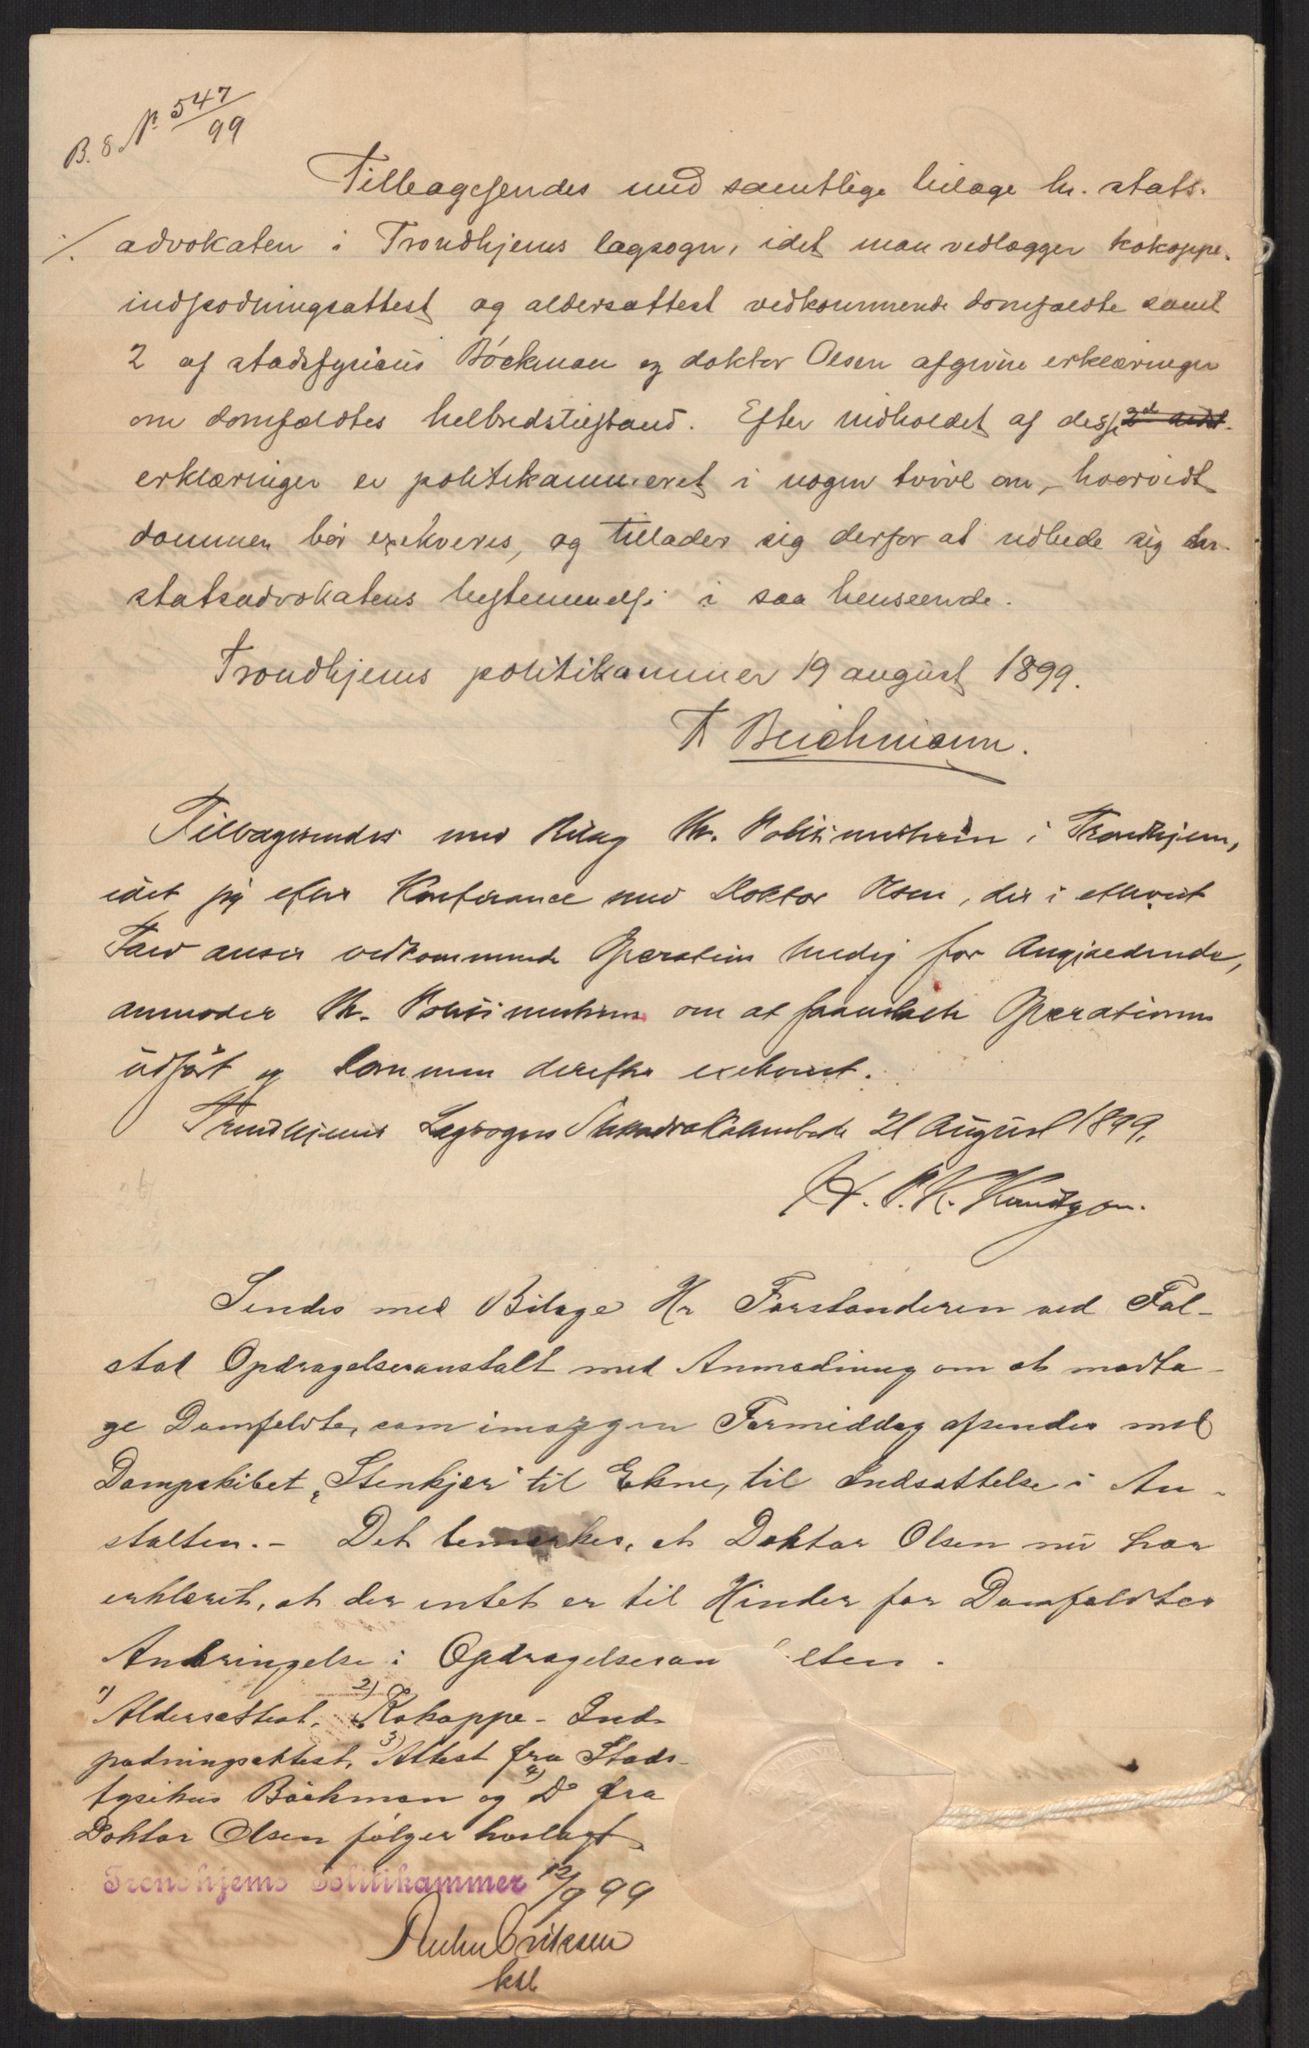 B. 8. № 547/99
Tilbagesendes med samtlige bilage hr. stats-
./. advokaten i Trondhjems lagsogn, idet man vedlægger kokoppe-
indpodningsattest og aldersattest vedkommende domfældte samt
2 af stadsfysicus Böckman og doktor Olsen afgivne erklæringer
om domfældtes helbredstilstand. Efter indholdet af disse
erklæringer er politikammeret i nogen tvivl om, hvorvidt
dommen bør exekveres, og tillader sig derfor at udbede sig hr.
statsadvokatens bestemmelse i saa henseende.
Trondhjems politikammer 19 august 1899.
Beichmann.
Tilbagesendes med Bilag Hr. Politimesteren i Trondhjem,
idet jeg efter Konferance med Doktor Olsen, der i ethvert
Fald anser vedkommende Operation heldig for Angjældende,
anmoder Hr. Politimesteren om at faa Operationen
udført og Dommen derefter exekveret.
Trondhjems Lagsogns Statsadvokatembede 21 August 1899.
Sendes med Bilage Hr Forstanderen ved Fal-
stad Opdragelseranstalt med Anmodning om at modta-
ge Domfeldte, som imorgen Formiddag afsendes med
Dampskibet „Stenkjær" til Ekne, til Indsættelse i An-
stalten. - Det bemærkes, at Doktor Olsen nu har
erklæret, at der intet er til Hinder for Domfeldtes
Anbringelse i Opdragelseran lten.
1) Aldersattest, 2) Kokoppe-Ind-
podningsattest, 3) Attest fra Stads-
fysikus Böckman og 4) Do fra
Doktor Olsen følger hoslagt
Trondhjems Politikammer 12/9 99
Eriksen
kst